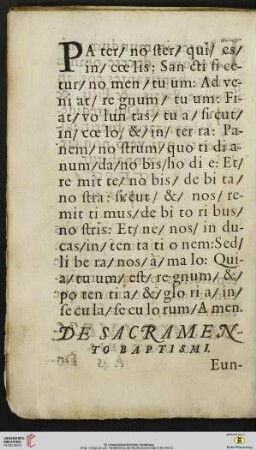 PA ter/ no ster/ qui/ es/
in/ cœ lis: San cti fi ce
tur/ no men/ tu um: Ad ve
ni at/ re gnum/ tu um: Fi-
at/ vo lun tas/ tu a/ sicut/
in/ cœ lo/ &/ in/ ter ra: Pa
nem/ no strum/ quo ti di a
num/ da/ no bis/ ho di e: Et/
re mit te/ no bis/ de bi ta/
no stra: sicut/ &/ nos/ re-
mit ti mus/ de bi to ri bus/
no stris: Et/ ne/ nos/ in du
cas/ in/ ten ta ti o nem: Sed/
li be ra/ nos/ à/ ma lo: Qui-
a/ tu um/ est/ re gnum/ &/
po ten ti a/ &/ glo ri a/ in/
se cu la/ se cu lo rum/ A men.
DE SACRAMEN-
TO BAPTISMI.
Eun-